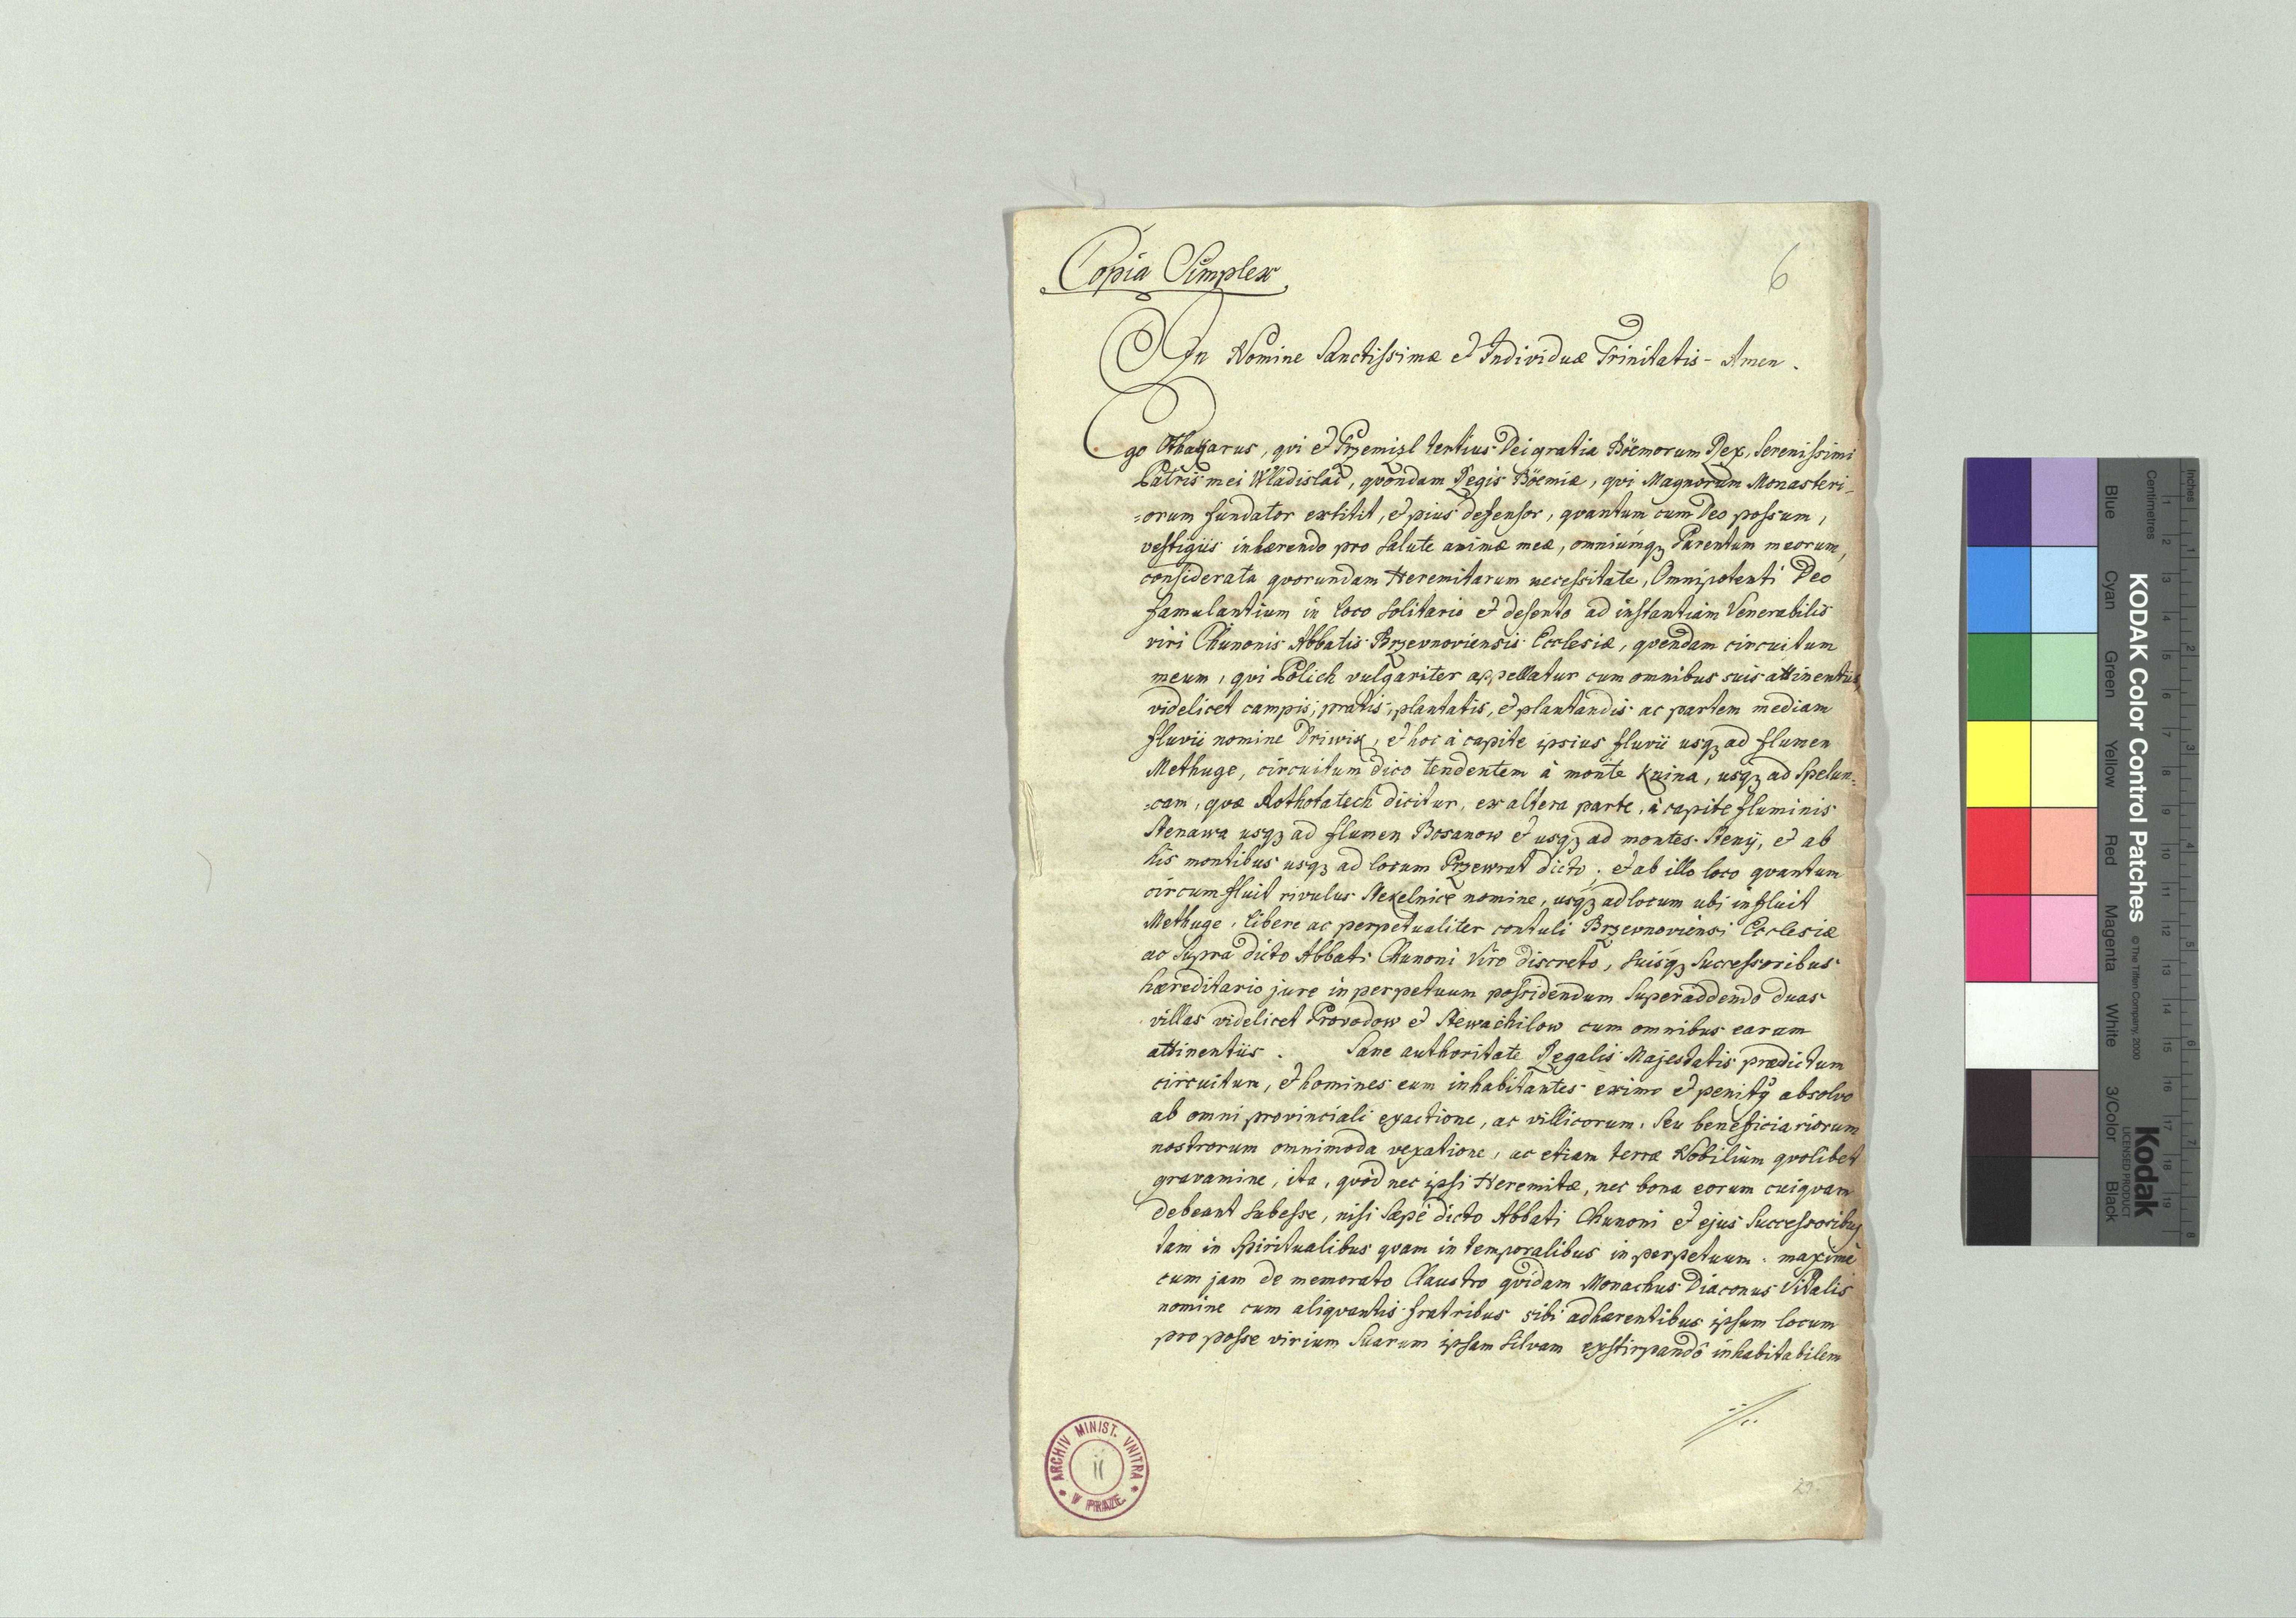 Copia Simplex
6
In Nomine Sanctissimæ et Individuæ Trinitatis - Amen.
Ego Othakarus, qvi et Przemisl tertius Dei gratia Böemorum Rex, Serenissimi
Patris mei Wladislai, qvondam Regis Böemiæ, qvi Magnorum Monasteri-
=orum fundator extitit, et pius defensor, qvantum cum Deo possum,
vestigiis inhærendo pro salute animæ meæ, omniumqz Parentum meorum,
considerata qvorundam Heremitarum necessitate, Omnipotenti Deo
famulantium in loco solitario et deserto ad instantiam Venerabilis
viri Chunonis Abbatis Brzevnoviensis Ecclesiæ, qvendam circuitum
meum, qvi Polich vulgariter appellatur cum omnibus suis attinentiis,
videlicet campis, pratis, plantatis, et plantandis ac partem mediam
fluvii nomine Driwix, et hoc à capite ipsius fluvii usqz ad flumen
Methuge, circuitum dico tendentem à monte Kuina, usqz ad Spelun=
=cam, qvæ Rothotatech dicitur, ex altera parte, à capite fluminis
Stenawa usqz ad flumen Bosanow et usqz ad montes Steny, et ab
his montibus usqz ad locum Przewrat dicto, et ab illo loco qvantum
circumfluit rivulus Nekelnice nomine, usqz ad locum ubi influit
Methuge, libere ac perpetualiter contuli Brzevnoviensi Ecclesiæ
ac supra dicto Abbati Chunoni Viro discreto, suisqz Successoribus
hæreditario jure in perpetuum possidendum superaddendo duas
villas videlicet Provodow et Newachilow cum omnibus earum
attinentiis. Sane authoritate Regalis Majestatis prædictum
circuitum, et homines eum inhabitantes eximo et penitq absolvo
ab omni provinciali exactione, ac villicorum, seu beneficiariorum
nostrorum omnimoda vexatione, ac etiam terræ Nobilium qvolibet
gravamine, ita, qvòd nec ipsi Heremitæ, nec bona eorum cuiqvam
debeant subesse, nisi sæpe dicto Abbati Chunoni et ejus Successoribus
tam in Spiritualibus qvam in temporalibus in perpetuum. maximè
cum jam de memorato Claustro qvidam Monachus Diaconus Vitalis
nomine cum aliqvantis fratribus sibi adhærentibus ipsum locum
pro posse virium suarum ipsam silvam exstirpandô inhabitabilem
ARCHIV MINIST. VNITRA
II
V PRAZE
Inches
Centimetres
KODAK Color Control Patches
© The Tiffen Company, 2000
Kodak
LICENSED PRODUCT
Blue
Cyan
Green
Yellow
Red
Magenta
White
3/Color
Black